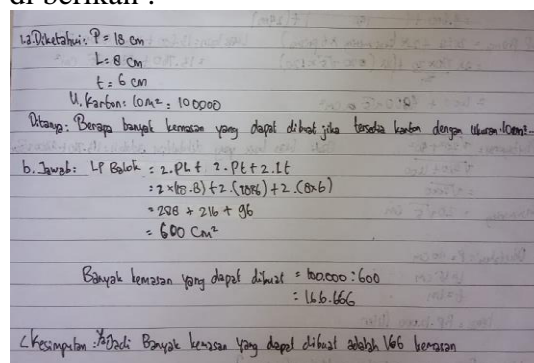 di berikan :
1.a. Diketahui : P = 18 cm
L = 8 cm
t = 6 cm
U. Karton : 10m² : 100000
Ditanya : Berapa banyak kemasan yang dapat dibuat jika tersedia karton dengan ukuran 10m²
b. Jawab : LP Balok = 2.PL + 2.Pt + 2.Lt
= 2 × (18.8) + 2. (18x6) + 2. (8x6)
= 288 + 216 + 96
= 600 Cm²
Banyak kemasan yang dapat dibuat = 100.000 : 600
= 166.666
c Kesimpulan : Jadi Banyak kemasan yang dapat dibuat adalah 166 kemasan